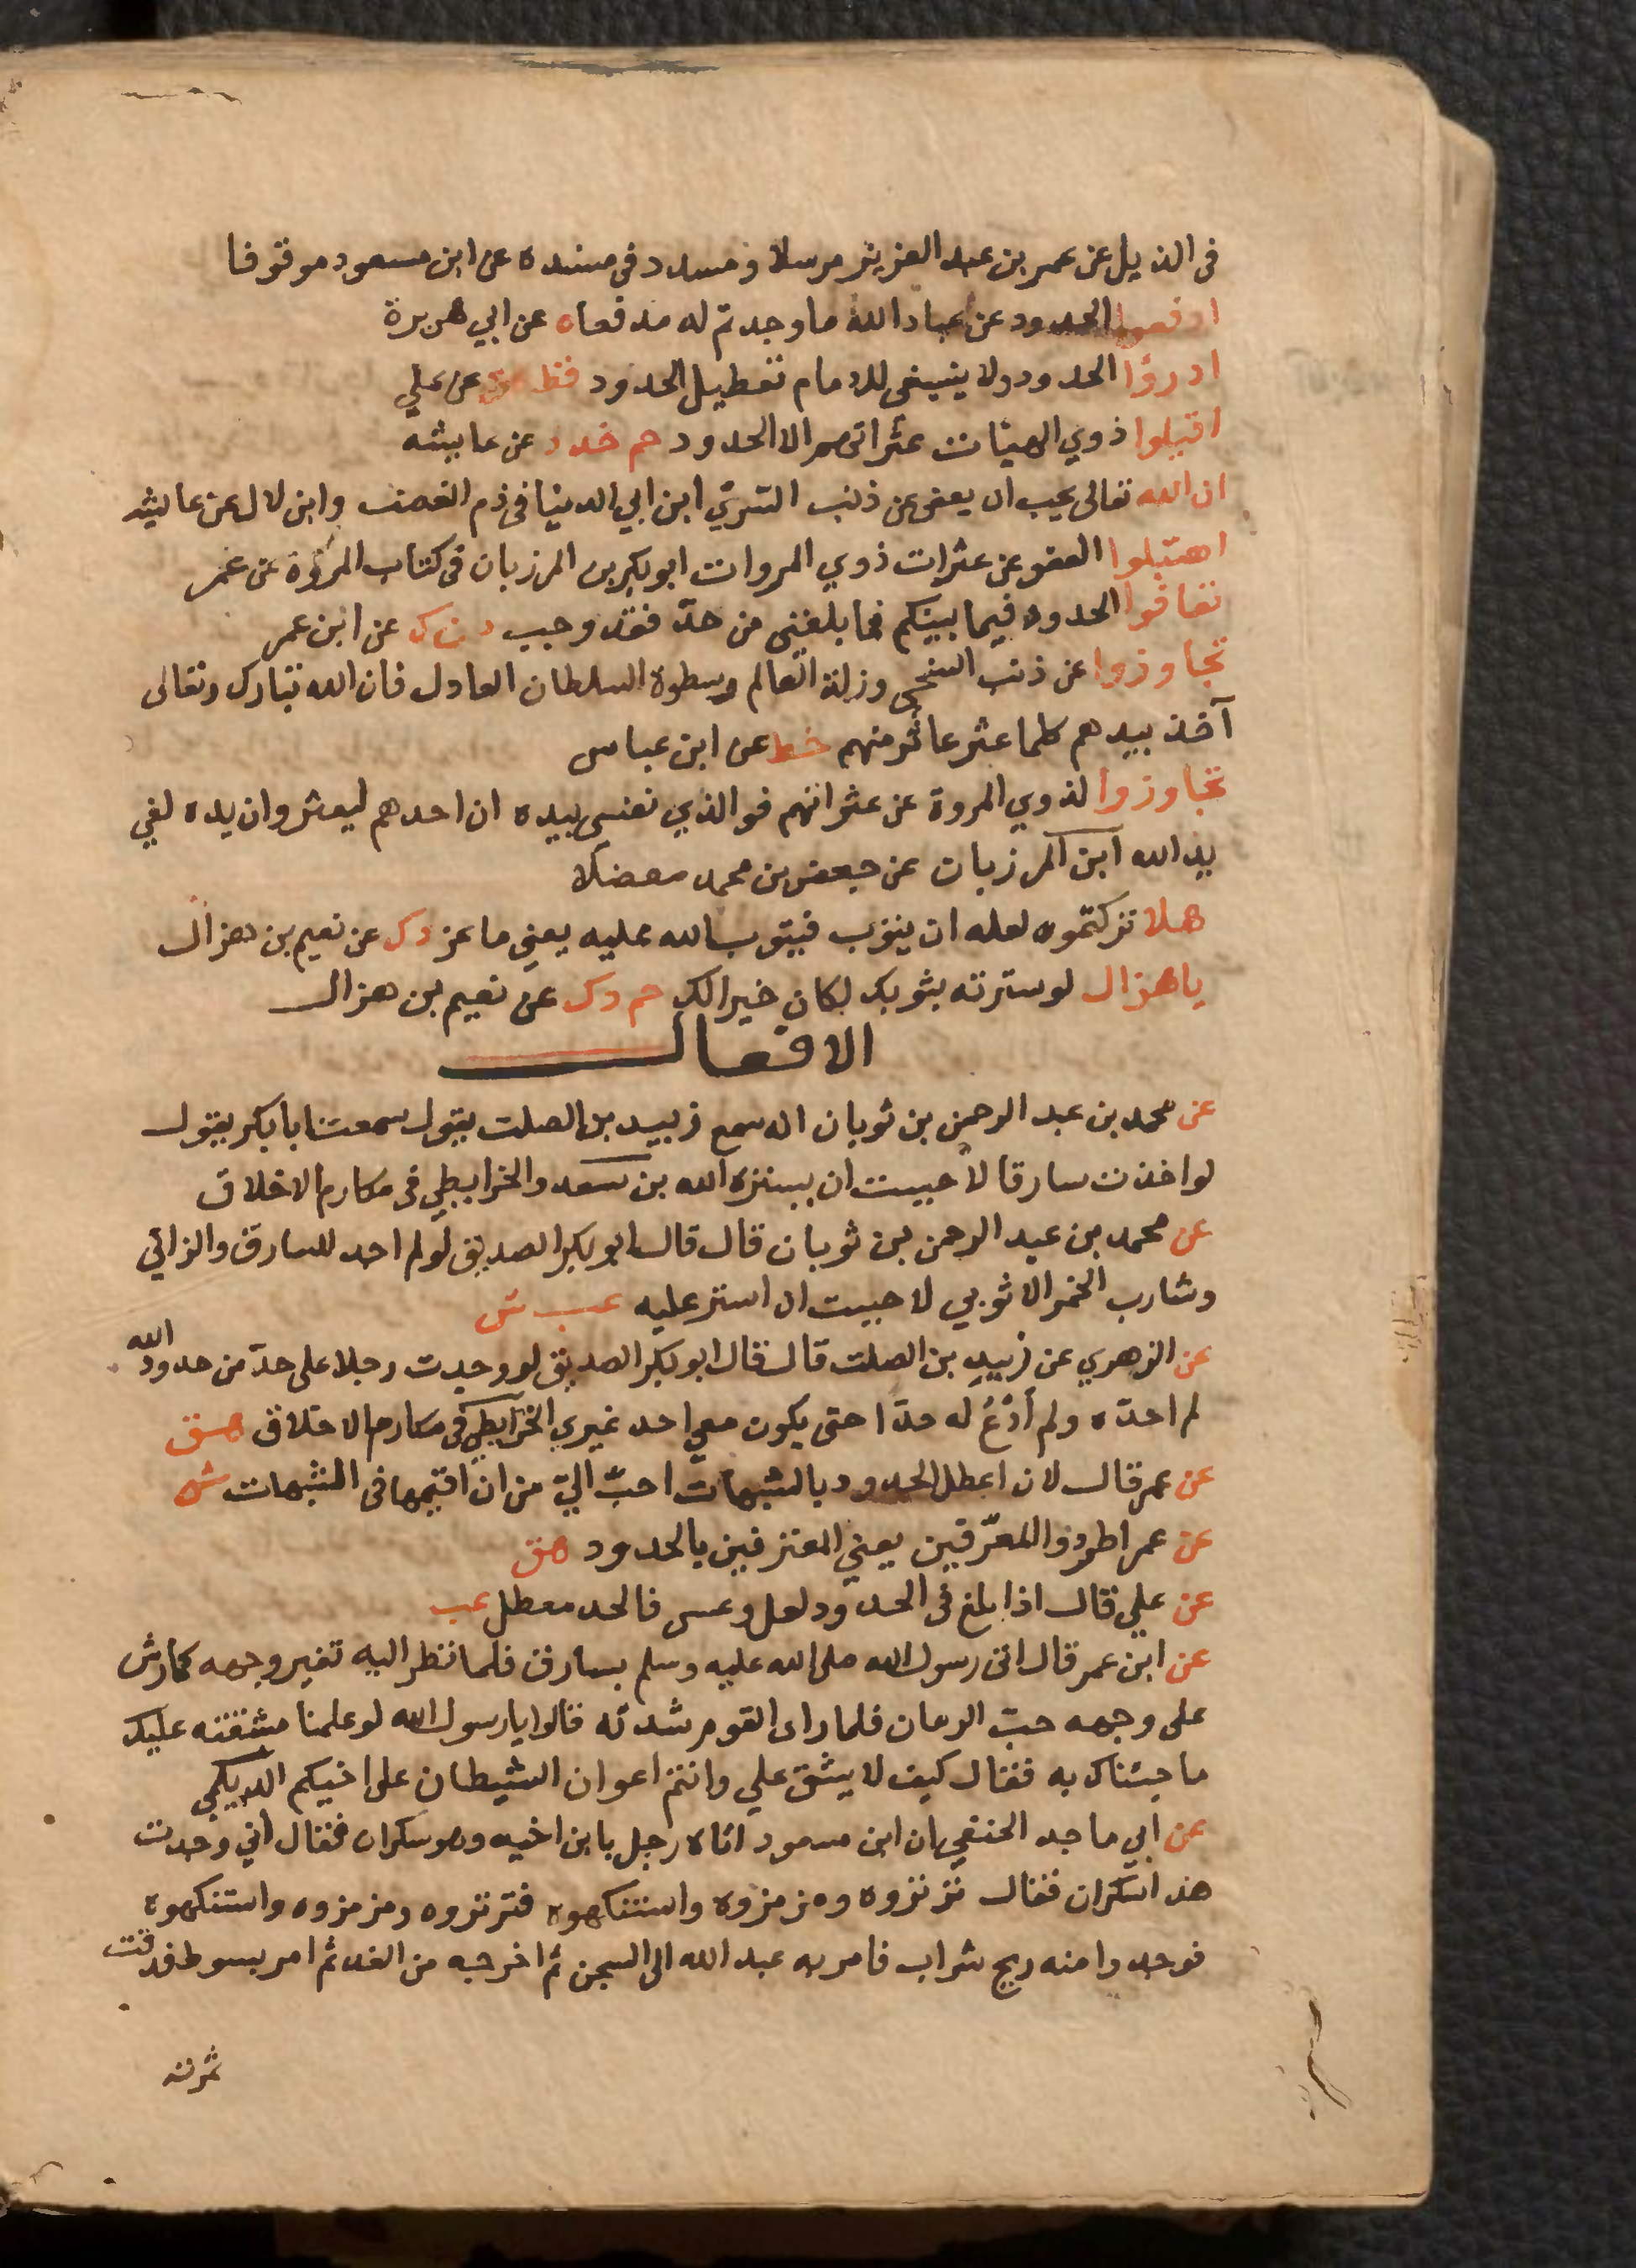 فى الذيل عن عمر بن عبد العزيز مرسلا ومسدد فى مسنده عن ابن مسعود موقوفا
ادفعوا الحدود عن عباد الله ما وجدتم له مدفعا ه عن ابي هريرة
ادرؤا الحدود ولا ينبغى للامام تعطيل الحدود قط هق عن علي
اقيلوا ذوي الهيئات عثراتهم الا الحدود حم خد د عن عايشه
ان الله تعالى يحب ان يعفى عن ذنب السري ابن ابي الدنيا فى ذم الغضب وابن لال عن عايشه
اهتبلوا العفو عن عثرات ذوي المروات ابو بكر بن المرزبان فى كتاب المروءة عن عمر
تعافوا الحدود فيما بينكم فما بلغنى من حدّ فقد وجب د ن ك عن ابن عمر
تجاوزوا عن ذنب السخى وزلة العالم وسطوة السلطان العادل فان الله تبارك وتعالى
آخذ بيدهم كلما عثر عاثر منهم خط عن ابن عباس
تجاوزوا لذوي المروة عن عثراتهم فوالذي نفسى بيده ان احدهم ليعثر وان يده لفي
يد الله ابن المرزبان عن جعفر بن محمد معضلا
هلا تركتموه لعله ان يتوب فيتوب الله عليه يعني ماعز د ك عن نعيم بن هزال
يا هزال لو سترته بثوبك لكان خيرا لك حم د ك عن نعيم بن هزال
الافعال
عن محمد بن عبد الرحمن بن ثوبان انه سمع زبيد بن الصلت يقول سمعت ابا بكر يقول
لو اخذت سارقا لاحببت ان يستره الله بن سعد والخرايطي فى مكارم الاخلاق
عن محمد بن عبد الرحمن بن ثوبان قال قال ابو بكر الصديق لو لم اجد للسارق والزاني
وشارب الخمر الا ثوبي لاحببت ان استر عليه عب ش
عن الزهري عن زبيد بن الصلت قال قال ابو بكر الصديق لو وجدت رجلا على حدّ من حدود الله
لم احدّه ولم أدْعُ له حدّا حتى يكون معي احد غيري الخرايطي فى مكارم الاخلاق هق
عن عمر قال لان اعطل الحدود بالشبهات احبّ اليّ من ان اقيمها فى الشبهات ش
عن عمر اطردوا المعترفين يعني المعترفين بالحدود هق
عن علي قال اذا بلغ فى الحدود لعل وعسى فالحد معطل عب
عن ابن عمر قال اتى رسول الله صلى الله عليه وسلم بسارق فلما نظر اليه تغير وجهه كما رش
على وجهه حبّ الرمان فلما راى القوم شدته قالوا يا رسول الله لو علمنا مشقته عليك
ما جئناك به فقال كيف لا يشق علي وانتم اعوان الشيطان على اخيكم الديلمي
عن ابي ماجد الحنفي ان ابن مسعود اتاه رجل بابن اخيه وهو سكران فقال اني وجدت
هذا سكران فقال ترتروه ومزمزوه واستنكهوه فترتروه ومزمزوه واستنكهوه
فوجدوا منه ريح شراب فامر به عبد الله الى السجن ثم اخرجه من الغد ثم امر بسوط فدقت
ثمرته